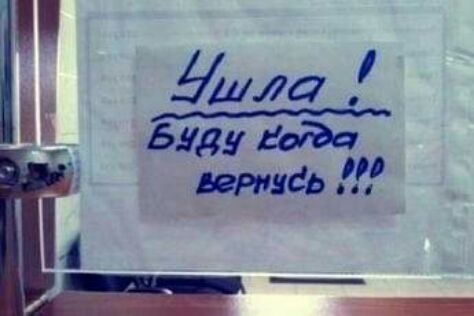 Ушла!
Буду когда
вернусь!!!